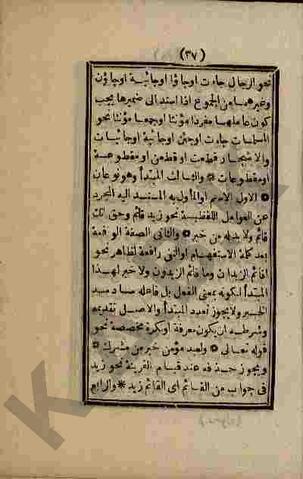 (٣٧)
نحو الرجال جاءت اوجاؤا اوجائية اوجاؤن
وغيرهما من الجموع اذا اسند الى ضميرها يجب
كون عاملها مفردا مؤنثا اوجمعا مؤنثا نحو
المسلمات جاءت اوجئن اوجائية اوجائيات
والاشجار قطعت اوقطعن اومقطوعة
اومقطوعات والثالث المبتدأ وهو نوعان
الاول الاسم اوالمأول به المسند اليه المجرد
عن العوامل اللفظية نحو زيد قائم وحق انك
قائم ولا بد له من خبر والثانى الصفة الواقعة
بعد كلمة الاستفهام اوالنفى رافعة لظاهر نحو
اقائم الزيدان وما قائم الزيدون ولا خبر لهذا
المبتدأ لكونه بمعنى الفعل بل فاعله ساد مسد
الخبر ولا يجوز تعدد المبتدأ والاصل تقديمه
وشرطه ان يكون معرفة اونكرة مخصصة نحو
قوله تعالى ولعبد مؤمن خير من مشرك
ويجوز حذفه عند قيام القرينة نحو زيد
فى جواب من القائم اى القائم زيد والرابع